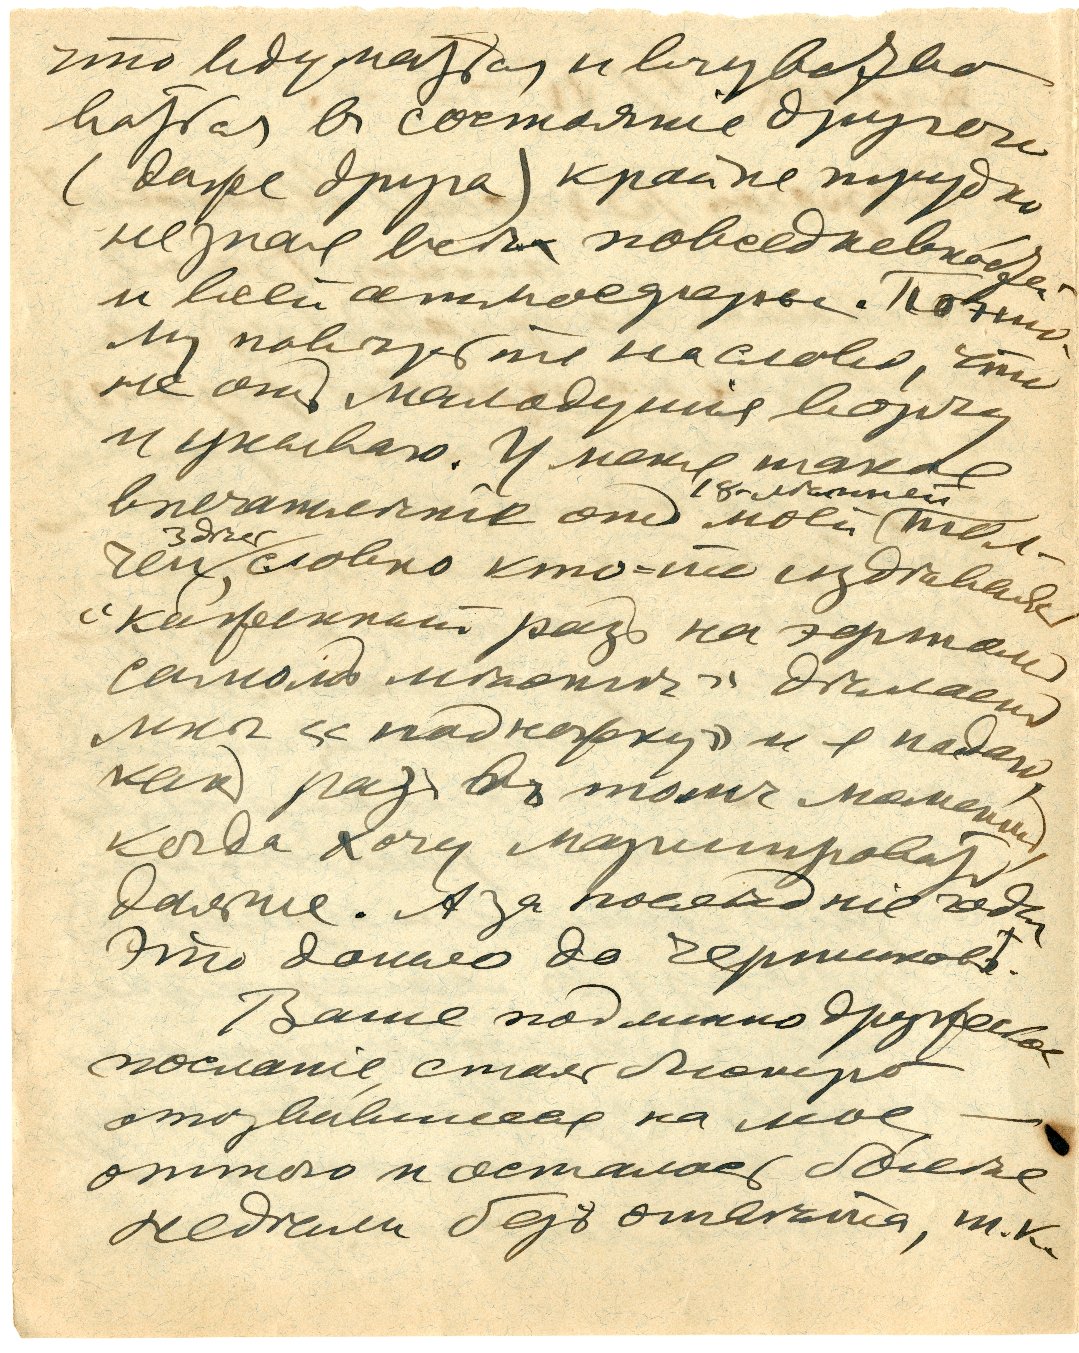 что вдуматься и вчувство
ваться въ состоянiе другого
(даже друга) крайне трудно
не зная всей повседневностей
и всей атмосферы. Поэто-
му поверьте на слово, что
не отъ малодушiя ворчу
и унываю. У меня такое
впечатленiе отъ моей 18-лѣтней тол-
чеи здѣсь, словно кто-то издѣваясь
"каженный разъ на эфтомъ
самомъ мѣстѣ" дѣлаетъ
мнѣ "подножку" и я падаю,
какъ разъ въ томъ моментѣ,
когда хочу маршировать
дальше. А за последнiе годы
это дошло до чертиковъ.
Ваше подлинно дружеское
посланiе, столь быстро
отозвавшееся на мое, —
оттого и осталось болѣе
недѣли безъ отвѣта, т.к.